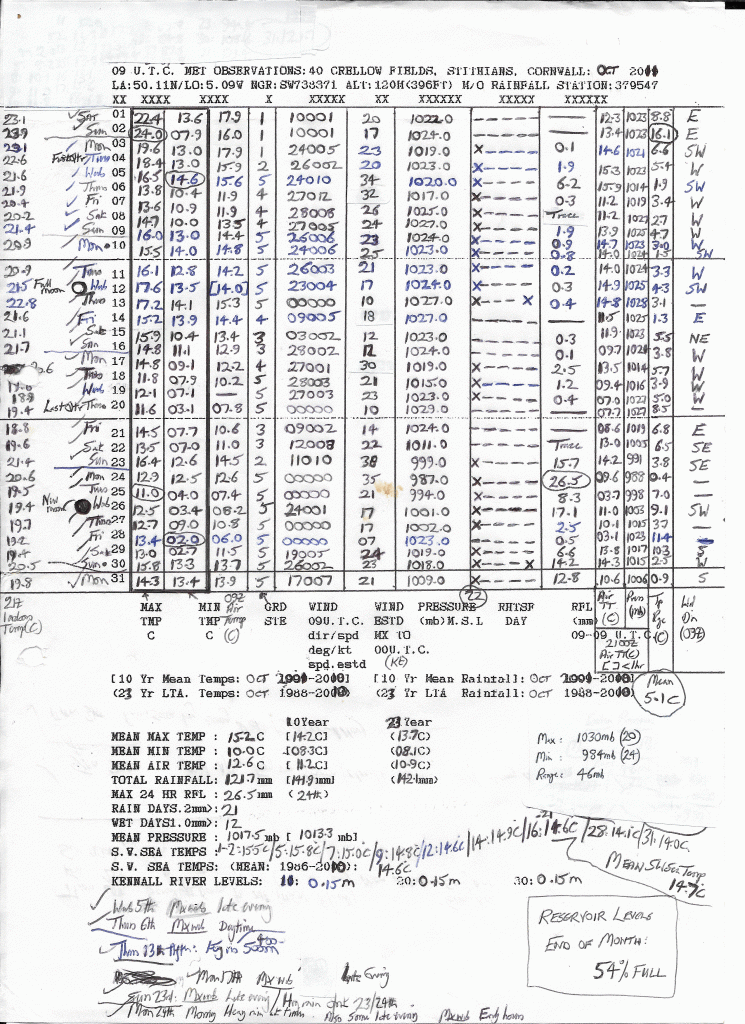 09 U.T.C. MET OBSERVATIONS: 40 CRELLOW FIELDS, STITHIANS, CORNWALL: OCT 2011
LA:50.11N/LO:5.09W NGR:SW738371 ALT:120M(396FT) M/O RAINFALL STATION:379547
XX XXXX XXXX X XXXXX XX XXXXXX XXXXX XXXXXX
23.1 Sat 01 22.4 13.6 17.9 1 10001 20 1022.0 12.3 1023 8.8 E
23.9 Sun 02 24.0 07.9 16.0 1 10001 17 1024.0 13.4 1023 16.1 E
23.1 Mon 03 19.6 13.0 17.9 1 24005 23 1019.0 X---- 0.1 14.6 1021 6.6 SW
22.6 First Qtr Tues 04 18.4 13.0 15.9 2 26002 20 1023.0 X---- 1.9 15.3 1023 5.4 W
21.6 Wed 05 16.5 14.6 15.6 5 24010 34 1020.0 X---- 6.2 15.9 1014 1.9 SW
21.9 Thurs 06 13.8 10.4 11.9 4 27012 32 1017.0 X---- 0.3 11.2 1019 3.4 W
20.4 Fri 07 13.6 10.9 11.9 4 28008 26 1025.0 X---- Trace 11.2 1027 2.7 W
20.2 Sat 08 14.7 10.0 13.5 4 27005 24 1027.0 X---- 1.9 13.9 1025 4.7 W
21.4 Sun 09 16.0 13.0 14.4 5 26006 23 1024.0 X---- 0.9 14.7 1023 3.0 W
20.9 Mon 10 15.5 14.0 14.8 5 24006 25 1023.0 X---- 0.8 14.0 1024 1.5 SW
20.9 Tues 11 16.1 12.8 14.2 5 26003 21 1023.0 X---- 0.2 14.0 1024 3.3 W
21.5 Full Moon Wed 12 17.6 13.5 [14.0] 5 23004 17 1024.0 X---- 0.3 14.9 1025 4.3 SW
22.8 Thurs 13 17.2 14.1 15.3 5 00000 10 1027.0 X--- X 0.4 14.8 1028 3.1 —
21.6 Fri 14 15.2 13.9 14.4 4 09005 18 1027.0 11.5 1025 1.3 E
21.1 Sat 15 15.9 10.4 13.4 3 03002 12 1023.0 X---- 0.3 11.9 1023 5.5 NE
21.7 Sun 16 14.8 11.1 12.9 3 28002 12 1024.0 X---- 0.1 09.7 1024 3.8 W
Mon 17 14.8 09.1 12.2 4 27001 30 1019.0 X---- 2.5 13.5 1014 5.7 W
Tues 18 11.8 07.9 10.2 5 28003 21 1015.0 X---- 1.2 09.4 1016 3.9 W
Wed 19 12.1 07.1 — 5 27003 23 1023.0 X---- 0.4 07.0 1022 5.0 W
19.4 Last Qtr Thurs 20 11.6 03.1 07.8 5 00000 10 1029.0 07.7 1027 8.5 —
18.8 Fri 21 14.5 07.7 10.6 3 09002 14 1024.0 08.6 1019 6.8 E
19.6 Sat 22 13.5 07.0 11.0 3 12008 22 1011.0 Trace 13.0 1005 6.5 SE
21.4 Sun 23 16.4 12.6 14.5 2 11010 38 999.0 X---- 15.7 14.2 991 3.8 SE
20.6 Mon 24 12.9 12.5 12.6 5 00000 35 987.0 X---- 26.5 09.6 988 0.4 —
19.5 Tues 25 11.0 04.0 07.4 5 00000 21 994.0 X---- 8.3 03.7 998 7.0 —
19.4 New Moon Wed 26 12.5 03.4 08.2 5 24001 17 1001.0 X---- 17.1 11.0 1003 9.1 SW
19.7 Thurs 27 12.7 09.0 10.8 5 00000 17 1002.0 X---- 2.5 10.1 1015 3.7 —
19.2 Fri 28 13.4 02.0 06.0 5 00000 07 1023.0 X---- 0.5 03.1 1023 11.4 —
19.4 Sat 29 13.0 02.7 11.5 5 19005 24 1019.0 X---- 6.6 13.8 1017 10.3 S
20.5 Sun 30 15.8 13.3 13.7 5 26002 23 1018.0 X---- X 14.2 14.3 1015 2.5 W
19.8 Mon 31 14.3 13.4 13.9 5 17007 21 1009.0 X---- 12.8 10.6 1006 0.9 S
21Z Indoor Temp (C) MAX MIN 09Z Air Temp (C) GRD WIND WIND PRESSURE 22 RHTSF RFL Air TT (C) Pres (mb) Tp Rge (C) Wd Dir (09Z)
TMP TMP STE 09U.T.C. ESTD (mb)M.S.L DAY (mm)
C C dir/spd MX TO 09-09 U.T.C.
deg/kt 00U.T.C. 2100Z Air TT(C)
spd.estd (KE) [ ] <1hr
[10 Yr Mean Temps: OCT 2001-2010] [10 Yr Mean Rainfall: OCT 2001-2010] Mean 5.1C
(23 Yr LTA. Temps: OCT 1988-2010) (23 Yr LTA Rainfall: OCT 1988-2010)
10Year 23Year
MEAN MAX TEMP : 15.2C [14.2C] (13.7C) Max: 1030mb (20)
MEAN MIN TEMP : 10.0C [08.3C] (08.1C) Min: 984mb (24)
MEAN AIR TEMP : 12.6C [11.2C] (10.9C) Range: 46mb
TOTAL RAINFALL: 121.7mm [141.9mm] (142.1mm)
MAX 24 HR RFL : 26.5mm (24th)
RAIN DAYS.2mm>: 21
WET DAYS1.0mm>: 12
MEAN PRESSURE : 1017.5mb [1013.3 mb]
S.W.SEA TEMPS : 1-2:15.5C/5:15.8C/7:15.0C/9:14.8C/12:14.6C/14:14.9C/16:14.6C/28:14.1C/31:14.0C
S.W. SEA TEMPS: (MEAN: 1986-2010): 14.6C MEAN SW Sea Temp 14.7C
KENNALL RIVER LEVELS: 10: 0.15m 20: 0.15m 30: 0.15m
Wed 5th Mxwd late evening
Thurs 6th Mxwd Daytime
Thurs 13th
Mon 17th Mx wd Late Evening
Sun 23rd: Mxwd Late evening / Hvy rain 23/24th
Mon 24th Morning Heavy rain Also Some late evening Mxwd Early hours
RESERVOIR LEVELS
END OF MONTH:
54% FULL